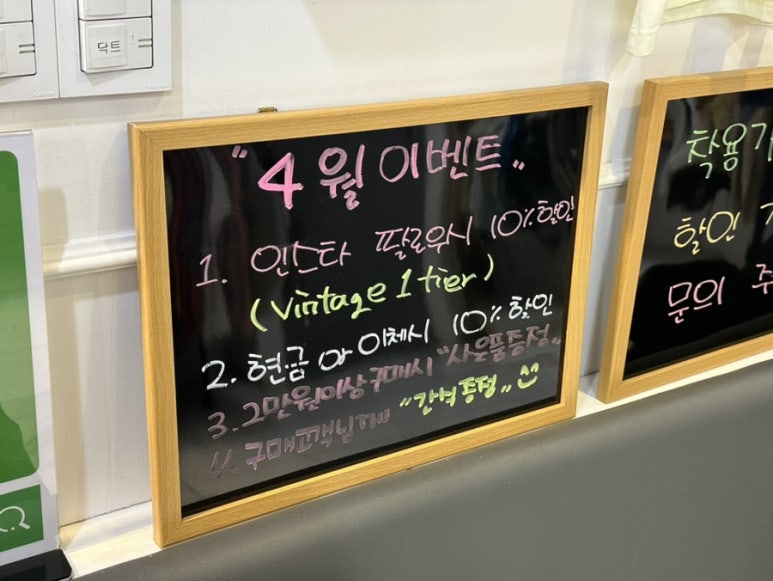 닥트
"4월 이벤트"
1. 인스타 팔로우시 10% 할인
(vintage 1 tier)
2. 현금 or 이체시 10% 할인
3. 2만원이상 구매시 "사은품증정"
4. 구매고객님께 "간식증정"
착용
할인
문의